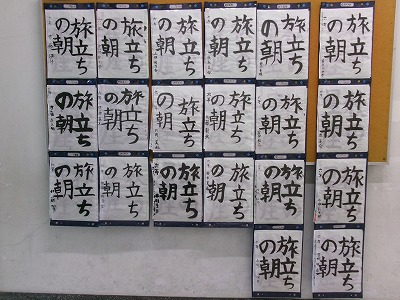 旅立ち
の朝
旅立ち
の朝
旅立ち
の朝
旅立ち
の朝
旅立ち
の朝
旅立ち
の朝
旅立ち
の朝
旅立ち
の朝
旅立ち
の朝
旅立ち
の朝
旅立ち
の朝
旅立ち
の朝
旅立ち
の朝
旅立ち
の朝
旅立ち
の朝
旅立ち
の朝
旅立ち
の朝
旅立ち
の朝
旅立ち
の朝
旅立ち
の朝